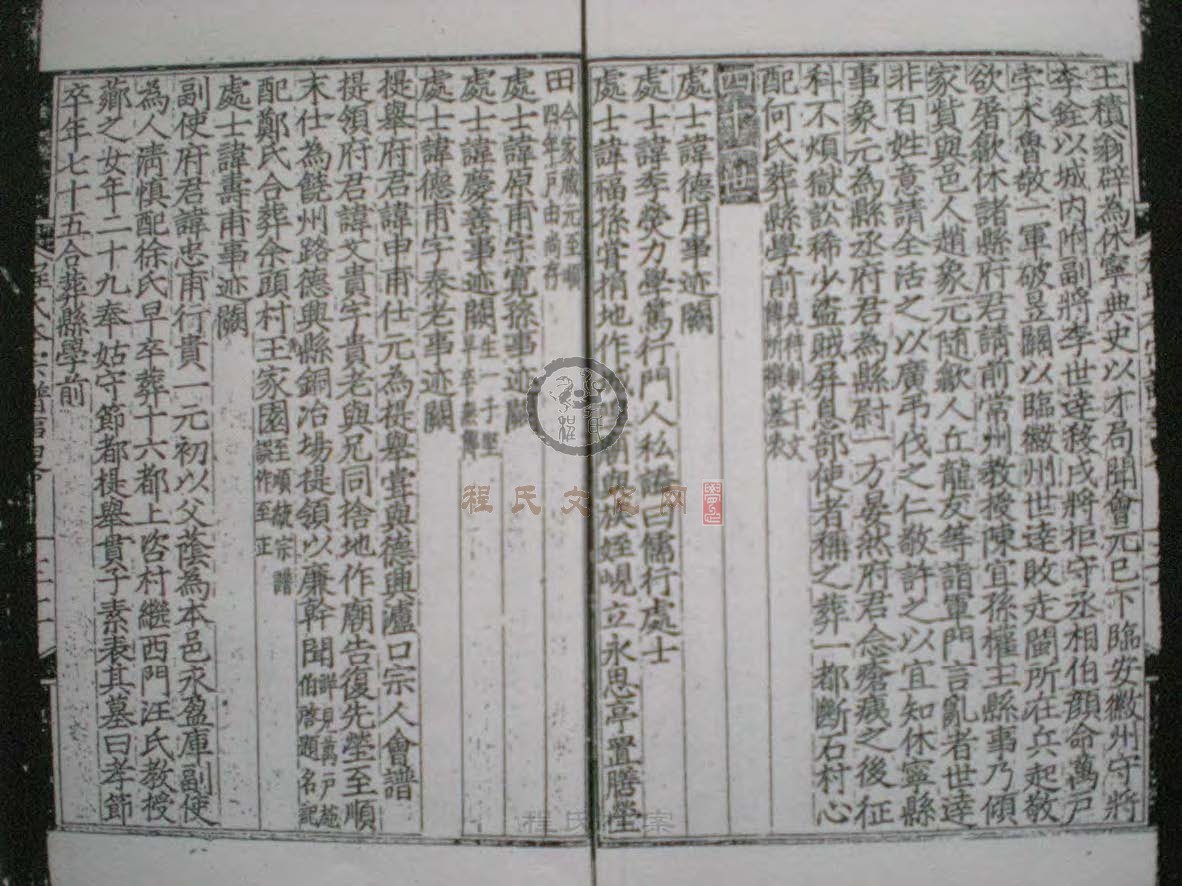 王積翁辟為休寧典史以才局聞會元巳下臨安徽州守將
李銓以城内附副將李世逹殺戍將拒守丞相伯顔命萬戸
孛术魯敬一軍破昱關以臨徽州世逹敗走閩所在兵起敬
欲屠歙休諸縣府君請前常州教授陳宜孫權主縣事乃傾
家貲與邑人趙象元随歙人丘龍友等詣軍門言亂者世逹
非百姓意請全活之以廣弔伐之仁敬許之以宜知休寧縣
事象元為縣丞府君為縣尉一方晏然府君念瘡痍之後征
科不煩獄訟稀少盗賊屏息部使者稱之葬一都斷石村心
配何氏葬縣學前
四十世
處士諱德用事迹闕
處士諱季熒力學篤行門人私諡曰儒行處士
處士諱福孫嘗捐地作 與族姪峴立永思亭置膳塋
田今家藏元至順四年戸由尚存
處士諱原甫字寛孫事迹闕
處士諱慶善事迹闕生一子堅早卒無傳
處士諱德甫字泰老事迹闕
提舉府君諱申甫仕元為提舉嘗與德興瀘口宗人會譜
提領府君諱文貴字貴老與兄同捨地作廟告復先塋至順
末仕為饒州路德興縣銅冶塲提領以廉幹聞詳見萬戸趙伯啓題名記
配鄭氏合葬余頭村王家園至順 宗譜誤作至正
處士諱壽甫事迹闕
副使府君諱忠甫行貴一元初以父蔭為本邑永盈庫副使
為人淸慎配徐氏早卒葬十六都上容村繼西門汪氏教授
薌之女年二十九奉姑守節都提舉貫子素表其墓曰孝節
卒年七十五合葬縣學前
程氏文化网
程氏文案